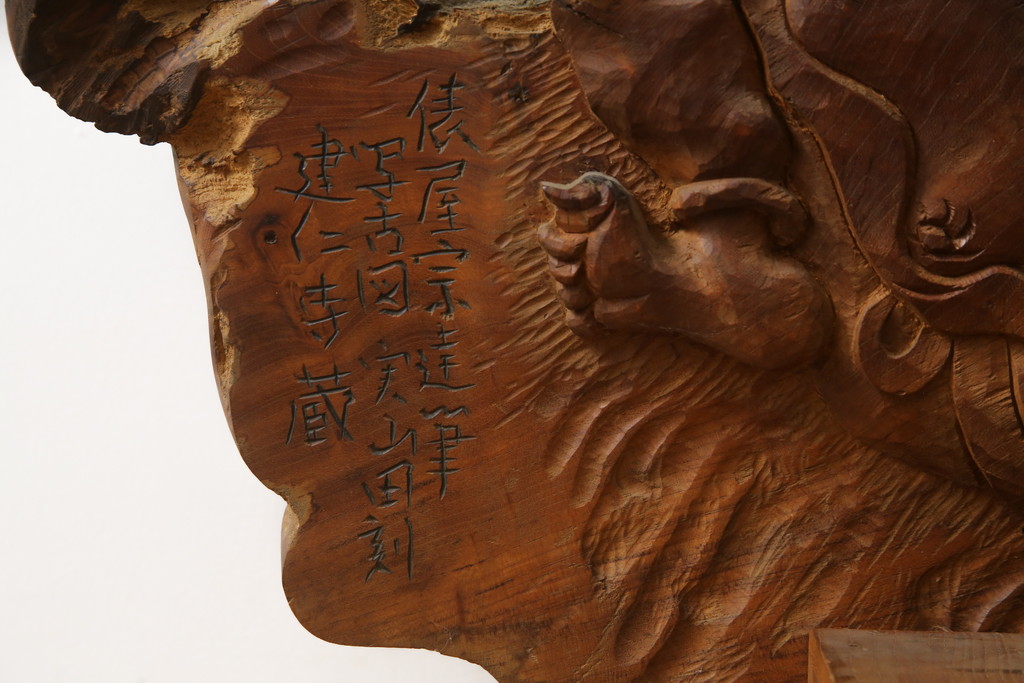 俵屋宗達筆
写古図 実山田刻
建仁寺蔵